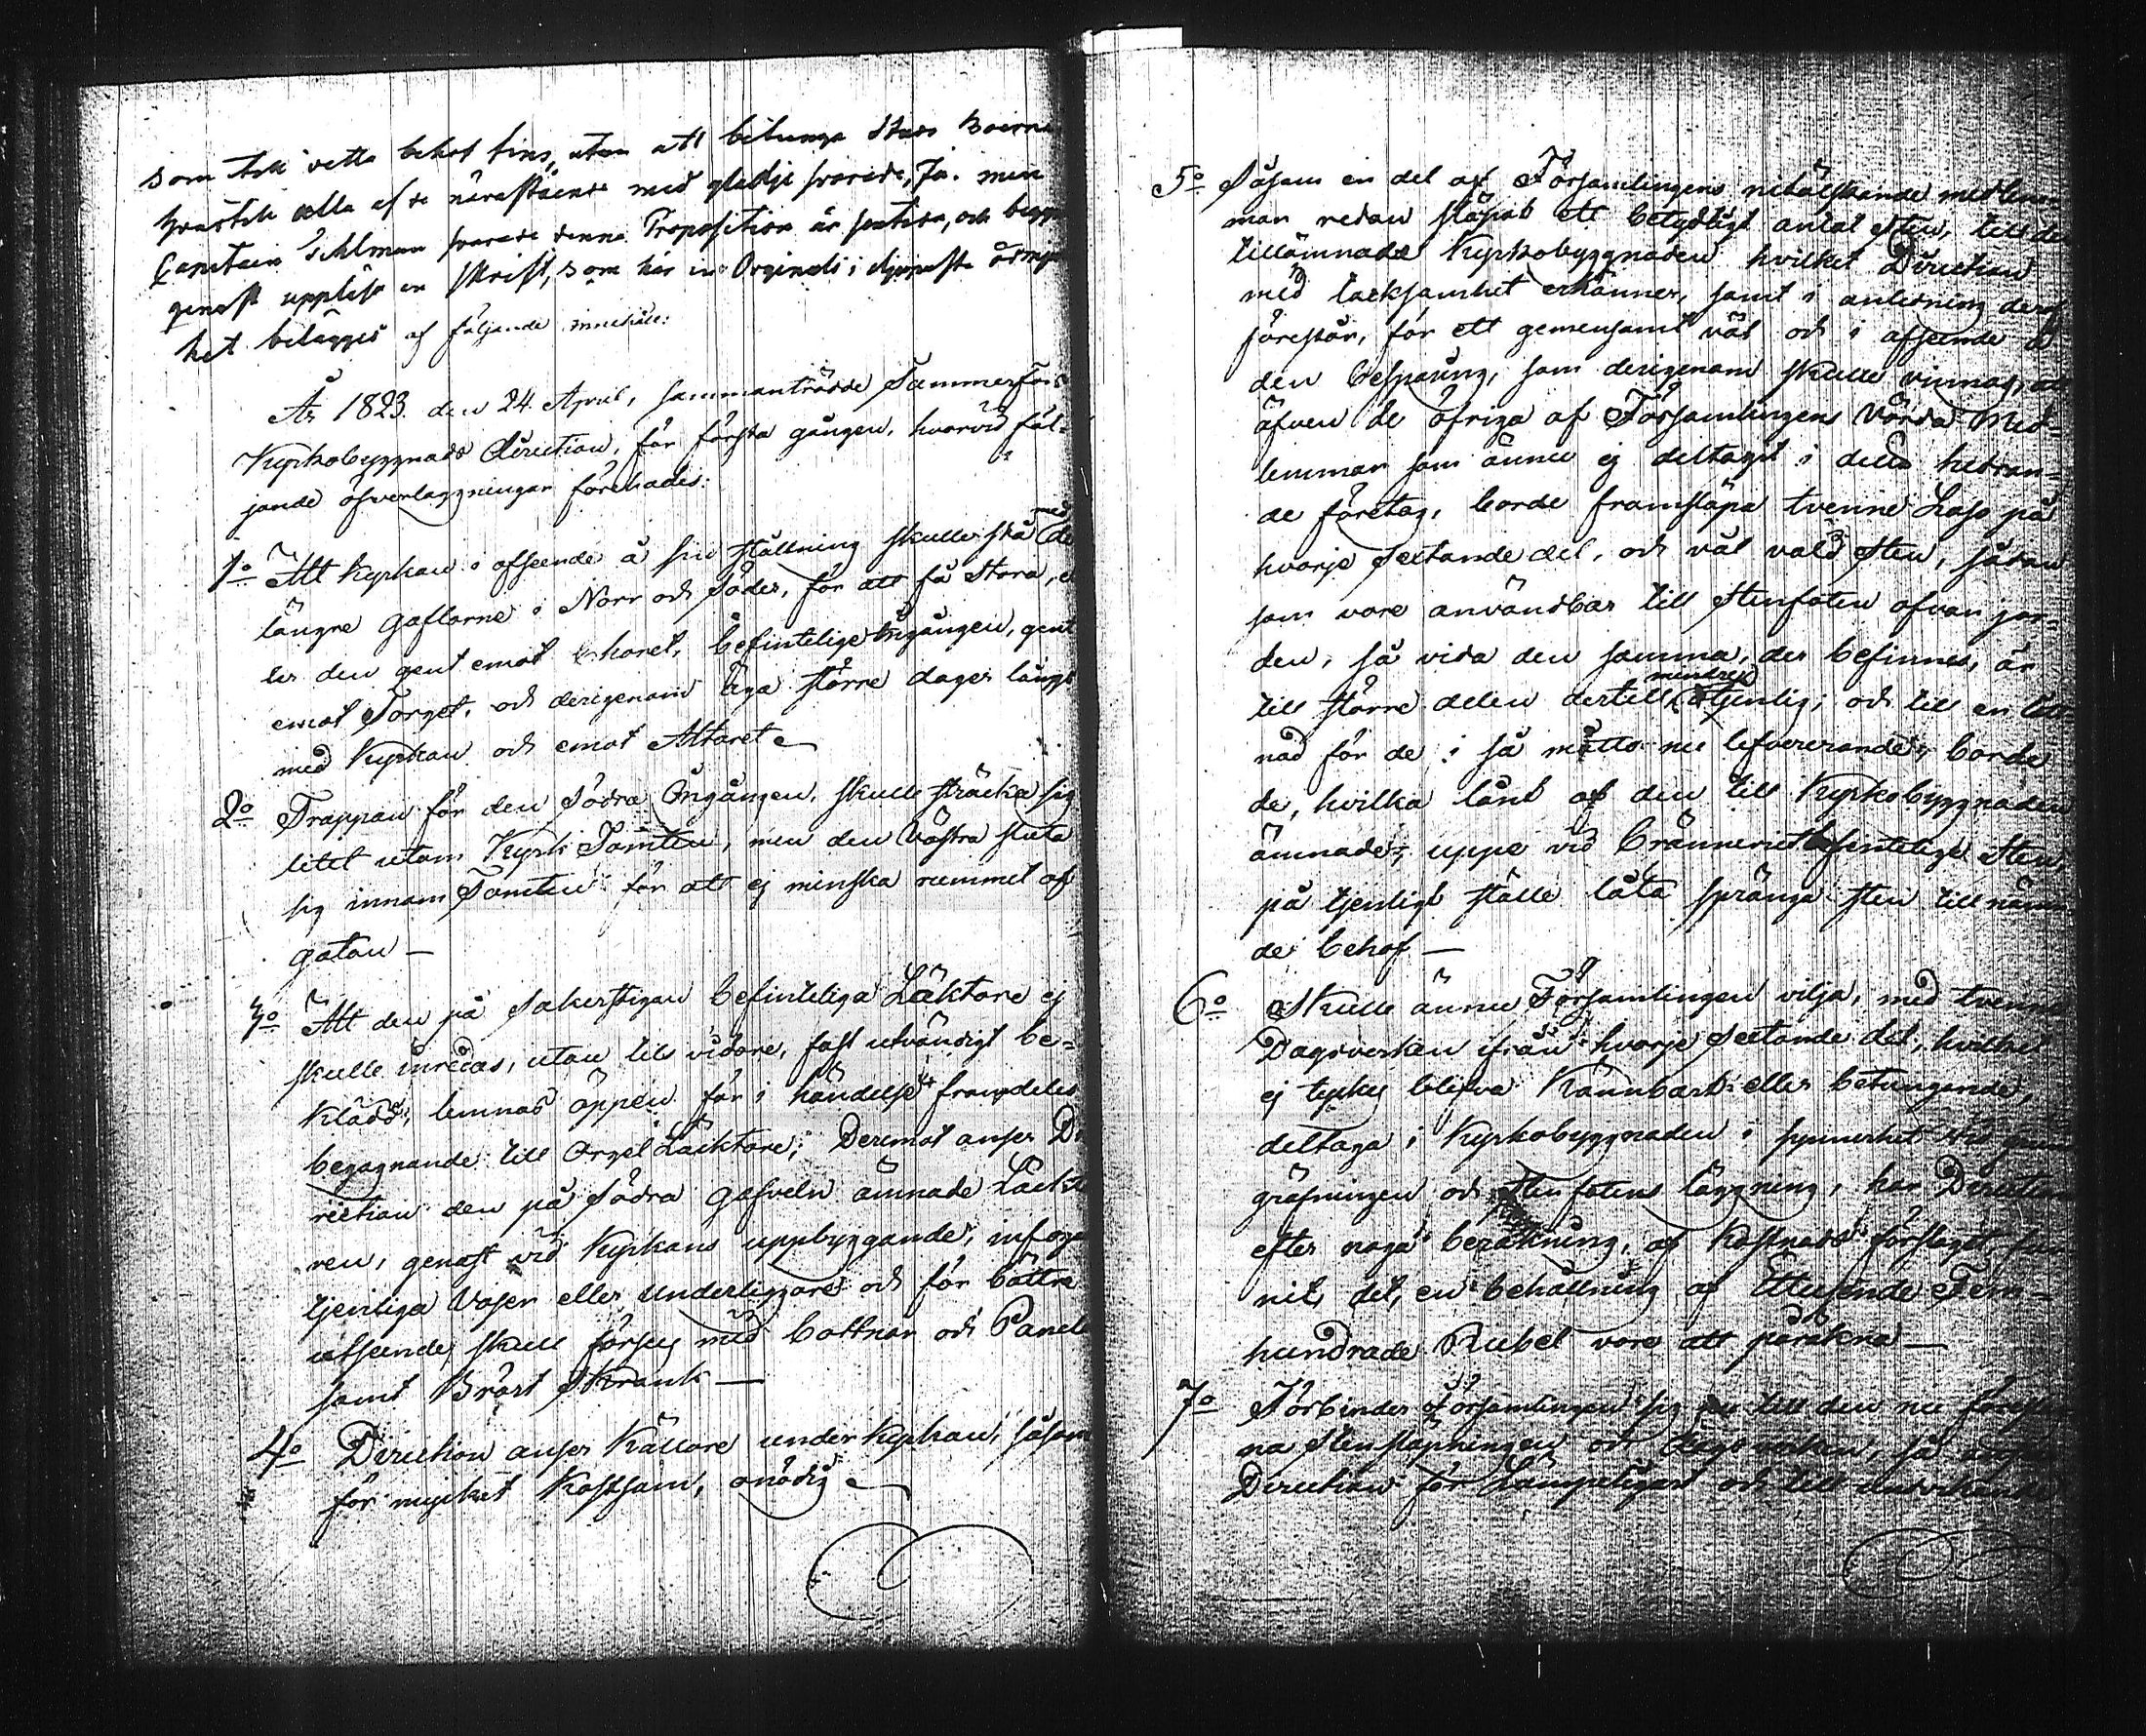 som till detta behof fins, utan att betunga
hvartill alla af de närastående med glädje svarade, Ja. men
Capitain Eklman svarade denna Proposition är
genast uppläste en skrift, som här in Originali i djupaste ödmju
het bilägges af följande innehåll:
År 1823. den 24. April, sammanträdde Sammerfors
Kyrkobyggnads Direction, för första gången, hvarvid föl-
jande öfverläggningar förehades:
1o Att Kyrkan i afseende å sin ställning skulle stå med de
längre gaflarne i Norr och Söder, för att få stora,
ler den gent emot Choret, befintelige Ingången, gent
emot Torget, och derigenom äga större dager längs
med Kyrkan och emot Altaret
2o Trappan för den Södra Ingången, skulle sträcka sig
litet utom Kyrk Tomten, men den Västra sluta
sig innom Tomten för att ej minska rummet af
gatan —
3o Att den på Sakerstigan befinteliga Läktare ej
skulle inredas, utan tils vidare, fast utvändigt be-
klädd, lemnas öppen för i händelse framdeles
begagnande till Orgel Läcktare; Deremot anser Di
rection den på Södra gafveln ämnade Läckta
ren, genast vid Kyrkans uppbyggande, infoga
tjenliga Vasen eller Underliggare och för bättre
utseende, skull förses med bottnar och Panel
samt Bröst Skrank —
4o Direction anser Källare under Kyrkan, såsom
för mycket Kostsam, onödig
5o Såsom en del af Församlingens nitälskande medlem
mar redan släpat ett betydligt antal Sten, till den
tillämnade Kyrkobyggnaden hvilket Direction
med tacksamhet erkänner, samt i anledning deraf
föreslår, för ett gemensamt väl och i afseende å
den besparing, som derigenom skulle vinnas, att
äfven de öfriga af Församlingens Värda Med-
lemmar som ännu ej deltagit i detta hedran-
de företag, borde framsläpa tvenne Lass på
hvarje Sextonde del, och väl vald Sten, sådan
som vore användbar till Stenfoten ofvan jor-
den, så vida den samma, der befinnes, är
till större delen dertill mindre tjenlig; och till en lik-
nad för de i så måtto nu lefvererande, borde
de, hvilka lånt af den till Kyrkobyggnaden
ämnade, uppe vid Bränneriet befintelige Sten,
på tjenligt ställe låta spränga sten till näm-
de behof —
6o Skulle ännu Församlingen vilja, med tvenne
Dagsverken ifrån hvarje Sextonde del, hvilket
ej tyckes blifva Kännbart eller betungande,
deltaga i Kyrkobyggnaden i synnerhet vid grund
gräfningen och Stenfotens läggning, har Direction
efter noga beräkning, af Kostnads förslaget fun
nit, det, en behållning af Ettusende Fem-
hundrade Rubel vore att påräkna —
7o Förbinder Församlingen sig till den nu föreslag
na Stensläpningen och Dagsverken, så anser
Direction för Lämpeligast och till undvikande